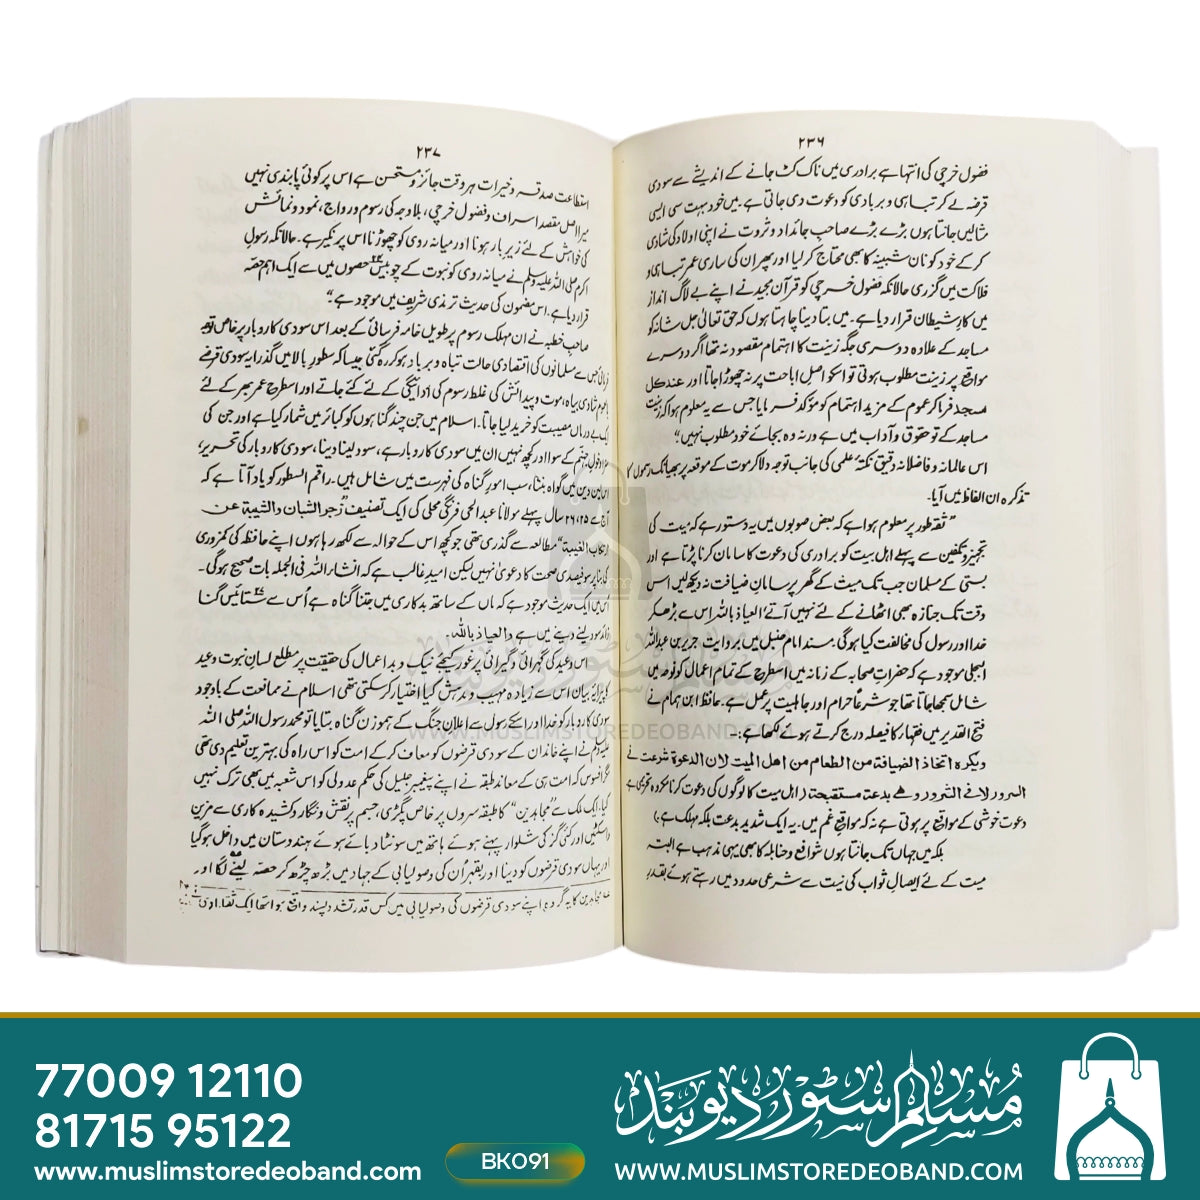 ۲۳۶
فضول خرچی کی انتہا ہے برادری میں ناک کٹ جانے کے اندیشے سے سودی
قرضہ لے کر تباہی و بربادی کو دعوت دی جاتی ہے۔ میں خود بہت سی ایسی
مثالیں جانتا ہوں بڑے بڑے صاحب جائداد و ثروت نے اپنی اولاد کی شادی
کر کے خود کو نان شبینہ کا بھی محتاج کر لیا اور پھر ان کی ساری عمر تباہی و
فلاکت میں گزری حالانکہ فضول خرچی کو قرآن مجید نے اپنے بے لاگ انداز
میں کارِ شیطان قرار دیا ہے۔ میں بتا دینا چاہتا ہوں کہ حق تعالیٰ جل شانہ کو
مساجد کے علاوہ دوسری جگہ زینت کا اہتمام مقصود نہ تھا اگر دوسرے
مواقع پر زینت مطلوب ہوتی تو اسکو اصل اباحت پر نہ چھوڑا جاتا اور عند کل
مسجد فرما کر عموم کے مزید اہتمام کو مؤکد فرمایا جس سے یہ معلوم ہوا کہ زینت
مساجد کے تو حقوق و آداب میں ہے ورنہ وہ بجائے خود مطلوب نہیں"
اس عالمانہ و فاضلانہ دقیق نکتۂ علمی کی جانب توجہ دلا کر موت کے موقعہ پر بھیانک رسموں کا
تذکرہ ان الفاظ میں آیا۔
"ثقہ طور پر معلوم ہوا ہے کہ بعض صوبوں میں یہ دستور ہے کہ میت کی
تجہیز و تکفین سے پہلے اہل میت کو برادری کی دعوت کا سامان کرنا پڑتا ہے اور
بستی کے مسلمان جب تک میت کے گھر پر سامانِ ضیافت نہ دیکھ لیں اس
وقت تک جنازہ بھی اٹھانے کے لئے نہیں آتے! العیاذ باللہ اس سے بڑھ کر
خدا اور رسول کی مخالفت کیا ہو گی۔ مسند امام حنبل میں بروایت جریر بن عبداللہ
البجلی موجود ہے کہ حضراتِ صحابہ کے زمانہ میں اسطرح کے تمام اعمال کو نوحہ میں
شامل سمجھا جاتا تھا جو شرعاً حرام اور جاہلیت پر عمل ہے۔ حافظ ابن ہمام نے
فتح القدیر میں فقہاء کا فیصلہ درج کرتے ہوئے لکھا ہے:-
ویکرہ اتخاذ الضیافة من الطعام من اهل المیت لان الدعوة شرعت فی
السرور لا فی الشرور وهی بدعة مستقبحة (اہل میت کا لوگوں کی دعوت کرنا مکروہ تحریمی ہے
دعوت خوشی کے مواقع پر ہوتی ہے نہ کہ مواقعِ غم میں۔ یہ ایک شدید بدعت بلکہ مہلک ہے)
بلکہ میں جہاں تک جانتا ہوں شوافع و حنابلہ کا بھی یہی مذہب ہے البتہ
میت کے لئے ایصالِ ثواب کی نیت سے شرعی حدود میں رہتے ہوئے بقدر
۲۳۷
استطاعت صدقہ و خیرات ہر وقت جائز و مستحسن ہے اس پر کوئی پابندی نہیں
میرا اصل مقصد اسراف و فضول خرچی، بلا وجہ کی رسوم و رواج، نمود و نمائش
کی خواہش کے لئے زیر بار ہونا اور میانہ روی کو چھوڑنا اس پر نکیر ہے۔ حالانکہ رسولِ
اکرم صلی اللہ علیہ وسلم نے میانہ روی کو نبوت کے چوبیس ۲۴ حصوں میں سے ایک اہم حصّہ
قرار دیا ہے۔ اس مضمون کی حدیث ترمذی شریف میں موجود ہے"
صاحبِ خطبہ نے ان مہلک رسوم پر طویل خامہ فرسائی کے بعد اس سودی کاروبار پر خاص توجہ
فرمائی جس سے مسلمانوں کی اقتصادی حالت تباہ و برباد ہو کر رہ گئی جیسا کہ سطورِ بالا میں گذرا یہ سودی قرضے
بالعموم شادی بیاہ، موت و پیدائش کی غلط رسوم کی ادائیگی کے لئے کئے جاتے اور اسطرح عمر بھر کے لئے
ایک بے درماں مصیبت کو خرید لیا جاتا۔ اسلام میں جن چند گناہوں کو کبائر میں شمار کیا ہے اور جن کی
سزا دخولِ جہنم کے سوا اور کچھ نہیں ان میں سودی کاروبار ہے، سود لینا دینا، سودی کاروبار کی تحریر،
اس لین دین میں گواہ بننا، سب امور گناہ کی فہرست میں شامل ہیں۔ راقم السطور کو یاد آتا ہے کہ
آج سے ۲۵، ۲۶ سال پہلے مولانا عبدالحی فرنگی محلی کی ایک تصنیف "زجر الشبان والشیبة عن
ارتکاب الغیبة" مطالعہ سے گذری تھی جو کچھ اس کے حوالہ سے لکھ رہا ہوں اپنے حافظہ کی کمزوری
کی بنا پر سو فیصدی صحت کا دعویٰ نہیں لیکن امید غالب ہے کہ انشاء اللہ فی الجملہ بات صحیح ہو گی۔
اس میں ایک حدیث موجود ہے کہ ماں کے ساتھ بدکاری میں جتنا گناہ ہے اُس سے ستائیس ۲۷ گنا
زائد سود لینے دینے میں ہے والعیاذ باللہ۔
اس وعید کی گہرائی و گیرائی پر غور کیجئے نیک و بد اعمال کی حقیقت پر مطلع لسانِ نبوت وعید
کا پیرایۂ بیان اس سے زیادہ مہیب و دہشت کیا اختیار کر سکتی تھی اسلام نے ممانعت کے باوجود
سودی کاروبار کو خدا اور اسکے رسول سے اعلانِ جنگ کے ہموزن گناہ بتایا تو محمد رسول اللہ صلی اللہ
علیہ وسلم نے اپنے خاندان کے سودی قرضوں کو معاف کر کے امت کو اس راہ کی بہترین تعلیم دی تھی
مگر افسوس کہ امت ہی کے معاند طبقہ نے اپنے پیغمبر جلیل کی حکم عدولی کو اس شعبہ میں بھی ترک نہیں
کیا، ایک ملک کے "مجاہدین" کا طبقہ سروں پر خاص پگڑی، جسم پر نقش و نگار و کشیدہ کاری سے مزین
واسکٹیں اور کئی گز کی شلوار پہنے ہوئے ہاتھ میں سونٹا دبائے ہوئے ہندوستان میں داخل ہو گیا
اور یہاں سودی قرضوں کو دینا اور بقہر اُن کی وصولیابی کے جہاد میں بڑھ چڑھ کر حصّہ لینے لگا اور۔
مجاہدین کا یہ گروہ اپنے سودی قرضوں کی وصولیابی میں کس قدر تشدد پسند واقع ہوا تھا ایک ثقہ راوی
WWW.MUSLIMSTOREDEOBAND.COM
77009 12110
81715 95122
www.muslimstoredeoband.com
BK091
مسلم سٹور دیوبند
WWW.MUSLIMSTOREDEOBAND.COM